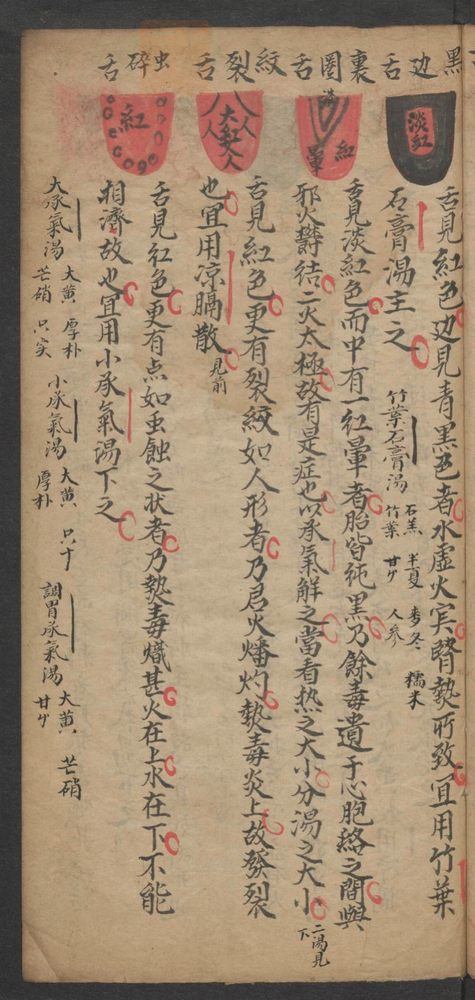 黑边舌
裏圈舌
紋裂舌
虫碎舌
淡红
红
暈
大红
人
人
人
人
红
舌見紅色边見青黑色者水虛火実腎熱所致宜用竹葉
石膏湯主之
竹葉石膏湯
石羔 半夏 麦冬 糯米
竹葉 甘屮 人参
舌見淡紅色而中有一紅暈者胎皆純黑乃餘毒遺于心胞絡之間與
邪火欝结二火太極故有是症也以承氣解之當看热之大小分湯之大小
二湯見下
舌見紅色更有裂紋如人形者乃君火燔灼熱毒炎上故發裂
也宜用凉膈散
見前
舌見紅色更有点如虫蝕之状者乃熱毒熾甚火在上水在下不能
相濟故也宜用小承氣湯下之
大承氣湯
大黄 厚朴
芒硝 只实
小承氣湯
大黄 只十
厚朴
調胃承氣湯
大黄 芒硝
甘屮